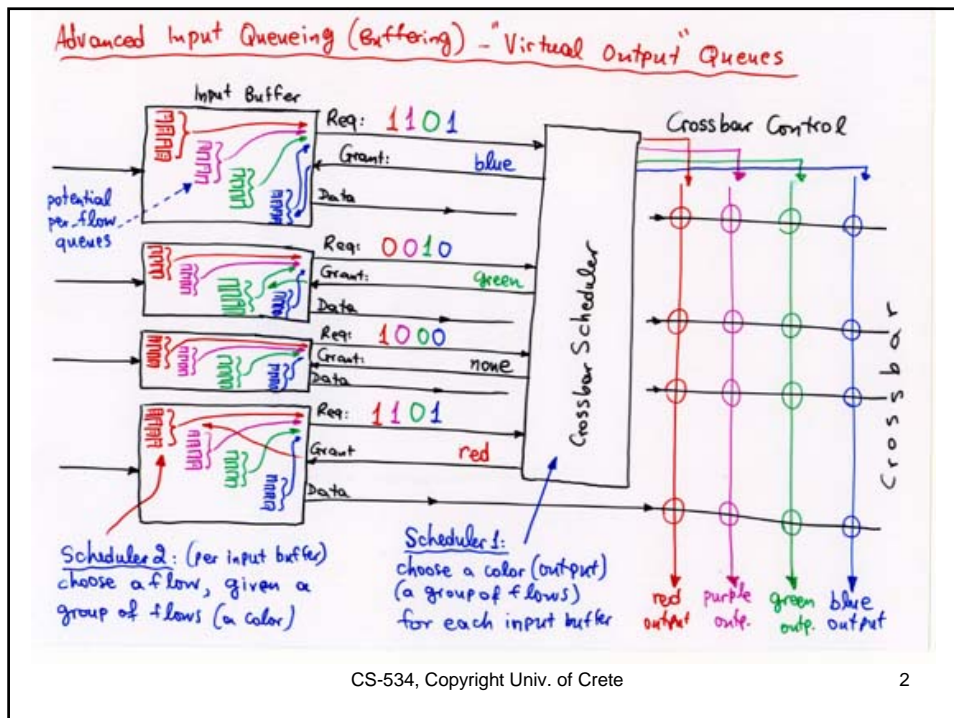 Advanced Input Queueing (Buffering) - "Virtual Output" Queues
Input Buffer
Crossbar Control
Req: 1101
Grant: blue
Data
potential
per-flow
queues
Req: 0010
Grant: green
Data
Req: 1000
Grant: none
Data
Req: 1101
Grant red
Data
Crossbar Scheduler
Crossbar
Scheduler 2: (per input buffer)
choose a flow, given a
group of flows (a color)
Scheduler 1:
choose a color (output)
(a group of flows)
for each input buffer
red
output
purple
outp.
green
outp.
blue
output
CS-534, Copyright Univ. of Crete
2